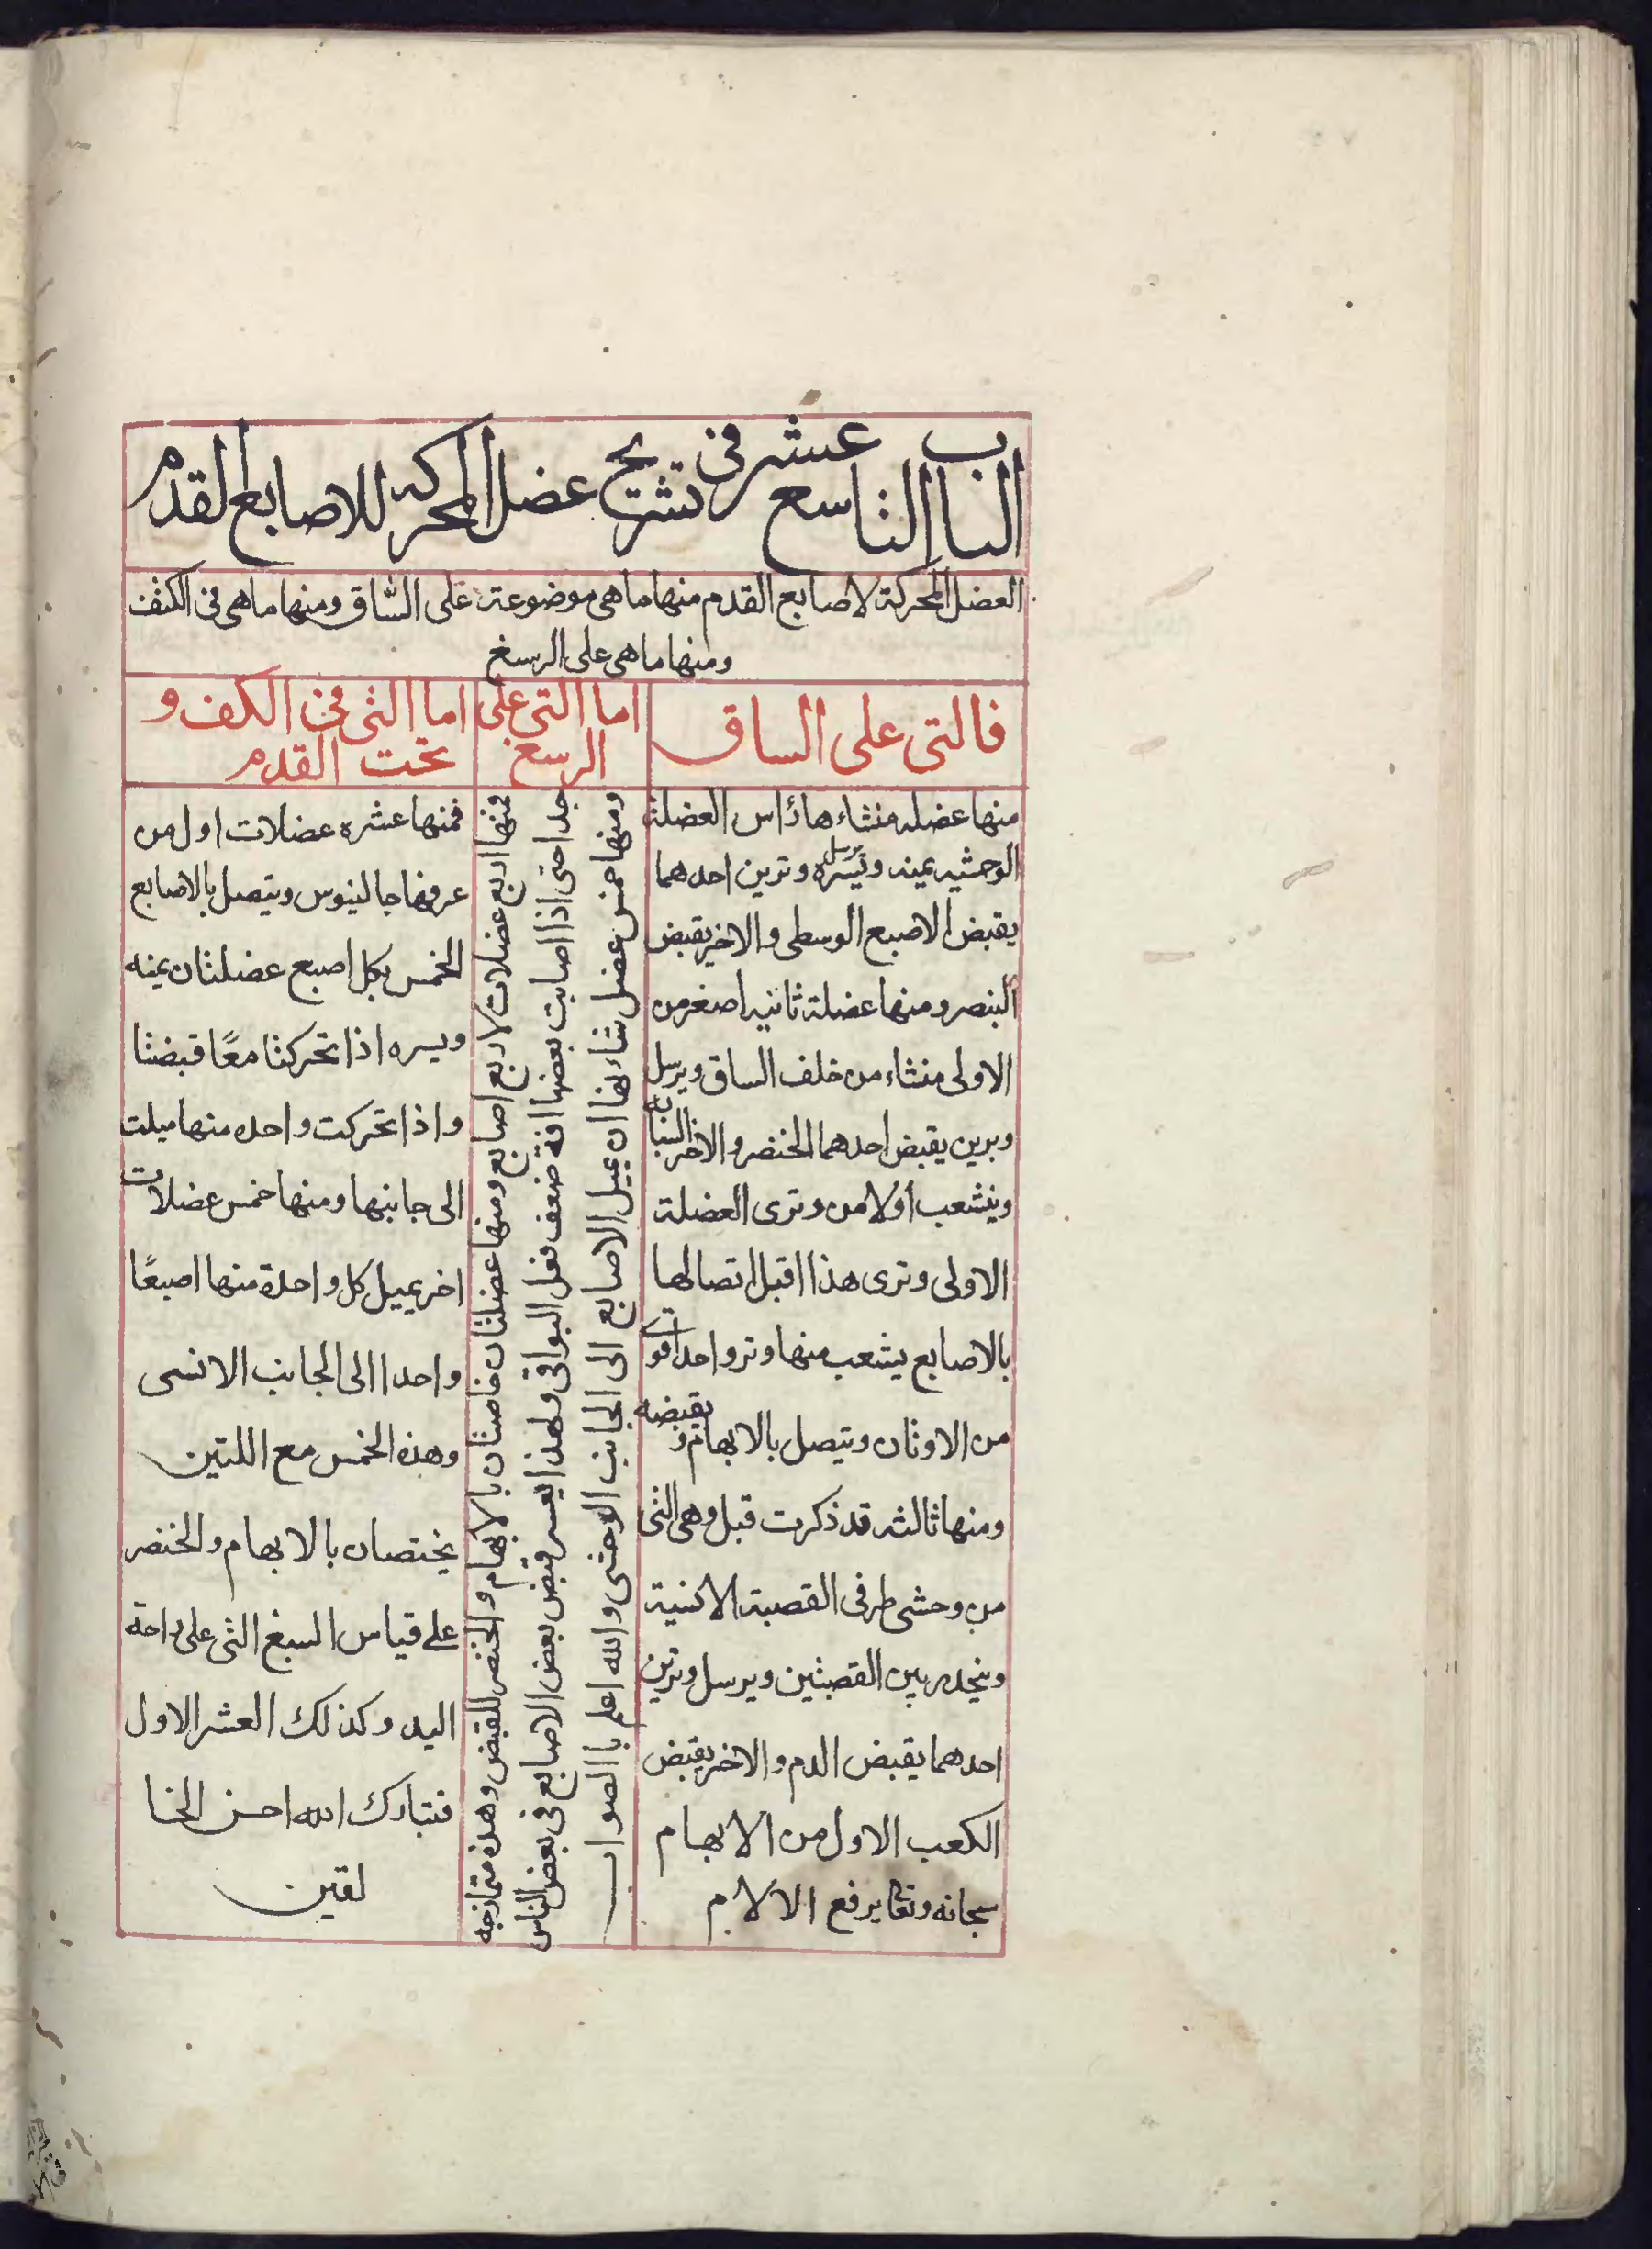 الباب التاسع عشر في تشريح عضل المحركه للاصابع القدم
العضل المحركة لاصابع القدم منها ما هى موضوعة على السّاق ومنها ما هى فى الكتف
ومنها ما هى على الرسغ
فالتى على الساق
منها عضله منشاءها رأس العضلة
الوحشيه يمنه ويسره يرسل وترين احدهما
يقبض الاصبع الوسطى والاخر يقبض
البنصر ومنها عضلة ثانيه اصغر من
الاولى منشاء من خلف الساق ويرسل
وبرين يقبض احدهما الخنضر والاخر السبابه
وينشعب أولا من وترى العضلة
الاولى وترى هذا اقبل اتصالها
بالاصابع يشعب منها وتر واحد اقوى
من الاوتان ويتصل بالابهام ويقبضه
ومنها ثالثه قد ذكرت قبل وهى التى
من وحشى طرفى القصبة الانسية
وينحدر بين القصبتين ويرسل وترين
احدهما يقبض الدم والاخر يقبض
الكعب الاول من الابهام
سبحانه وتعا يرفع الالام
اما التى على
الرسغ
فمنها اربع عضلات لاربع اصابع ومنها عضلتان خاصتان بالابهام والخنصر للقبض وهذه متمازجه
جدا حتى اذا اصابت بعضها افة ضعف فعل البواقى ولهذا يعسر قبض بعض الاصابع فى بعض الناس
ومنها خمس عضل شاءنها ان يميل الاصابع الى الجانب الوحشى والله اعلم باالصواب
اما التى فى الكف و
تحت القدم
فمنها عشره عضلات اول من
عرفها جالينوس ويتصل بالاصابع
الخمس بكل اصبع عضلتان يمنه
ويسره اذا تحركتا معًا قبضتا
واذا تحركت واحده منها ميلت
الى جانبها ومنها خمس عضلات
اخر يميل كل واحدة منها اصبعًا
واحدا الى الجانب الانسى
وهذه الخمس مع اللتين
يختصان بالابهام والخنضر
على قياس السبغ التى على راحة
اليد وكذلك العشر الاول
فتبارك الله احسن الخا
لقين